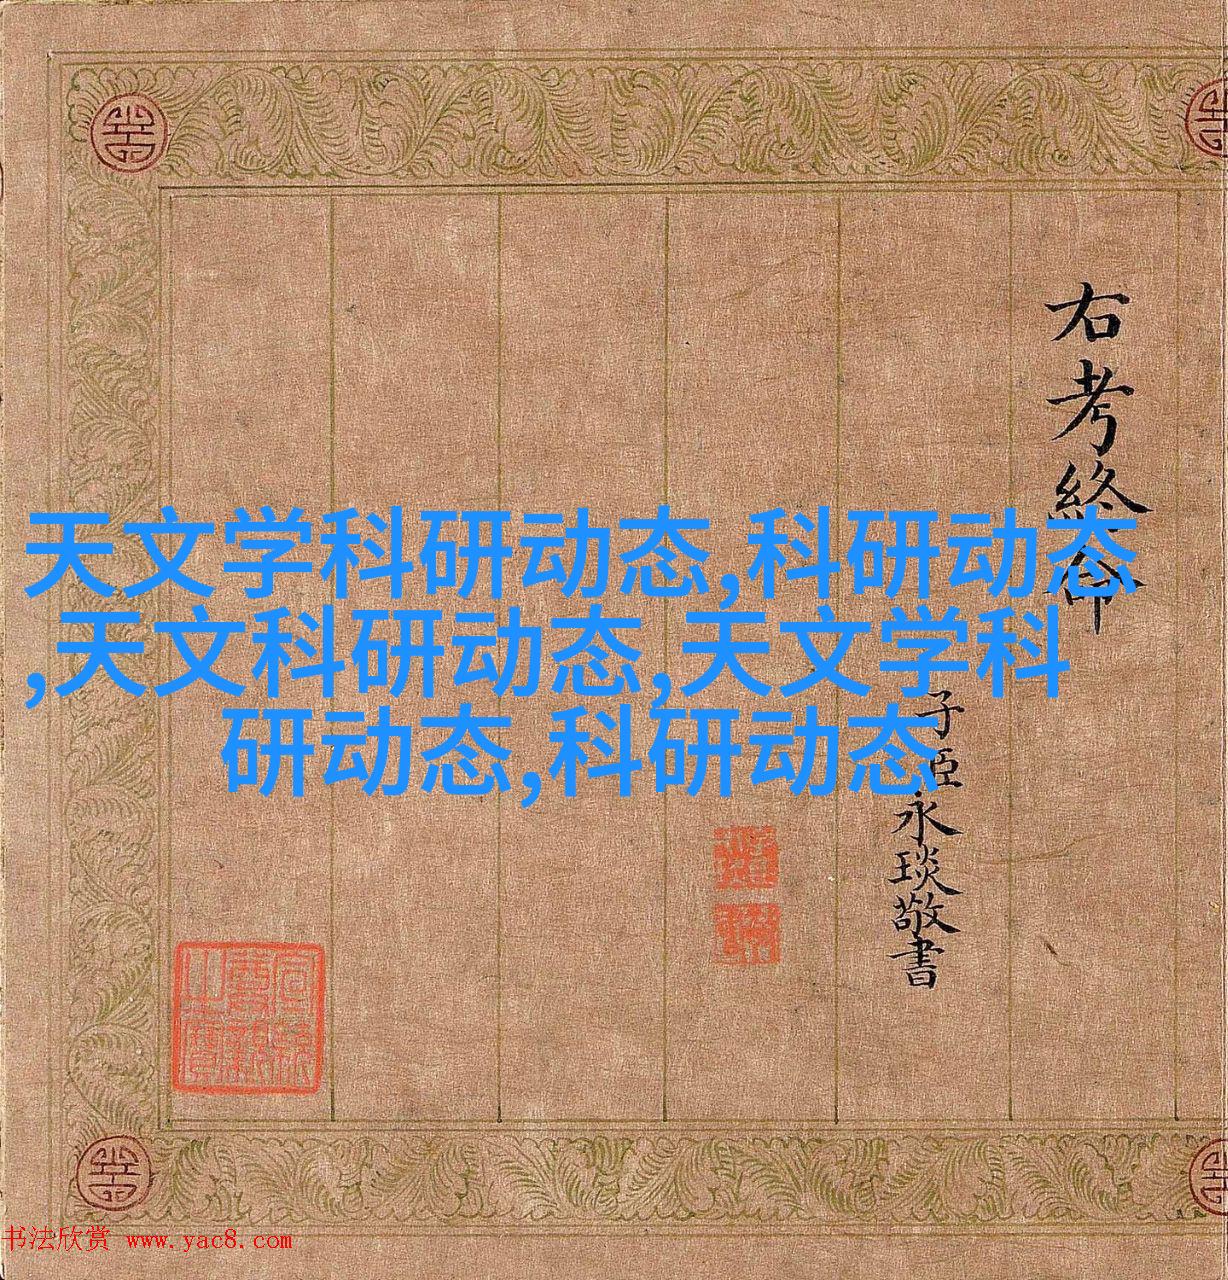 右考終命
子臣永琰敬書
天文学科研动态,科研动态
,天文科研动态,天文学科
研动态,科研动态
书法欣赏 www.yac8.com